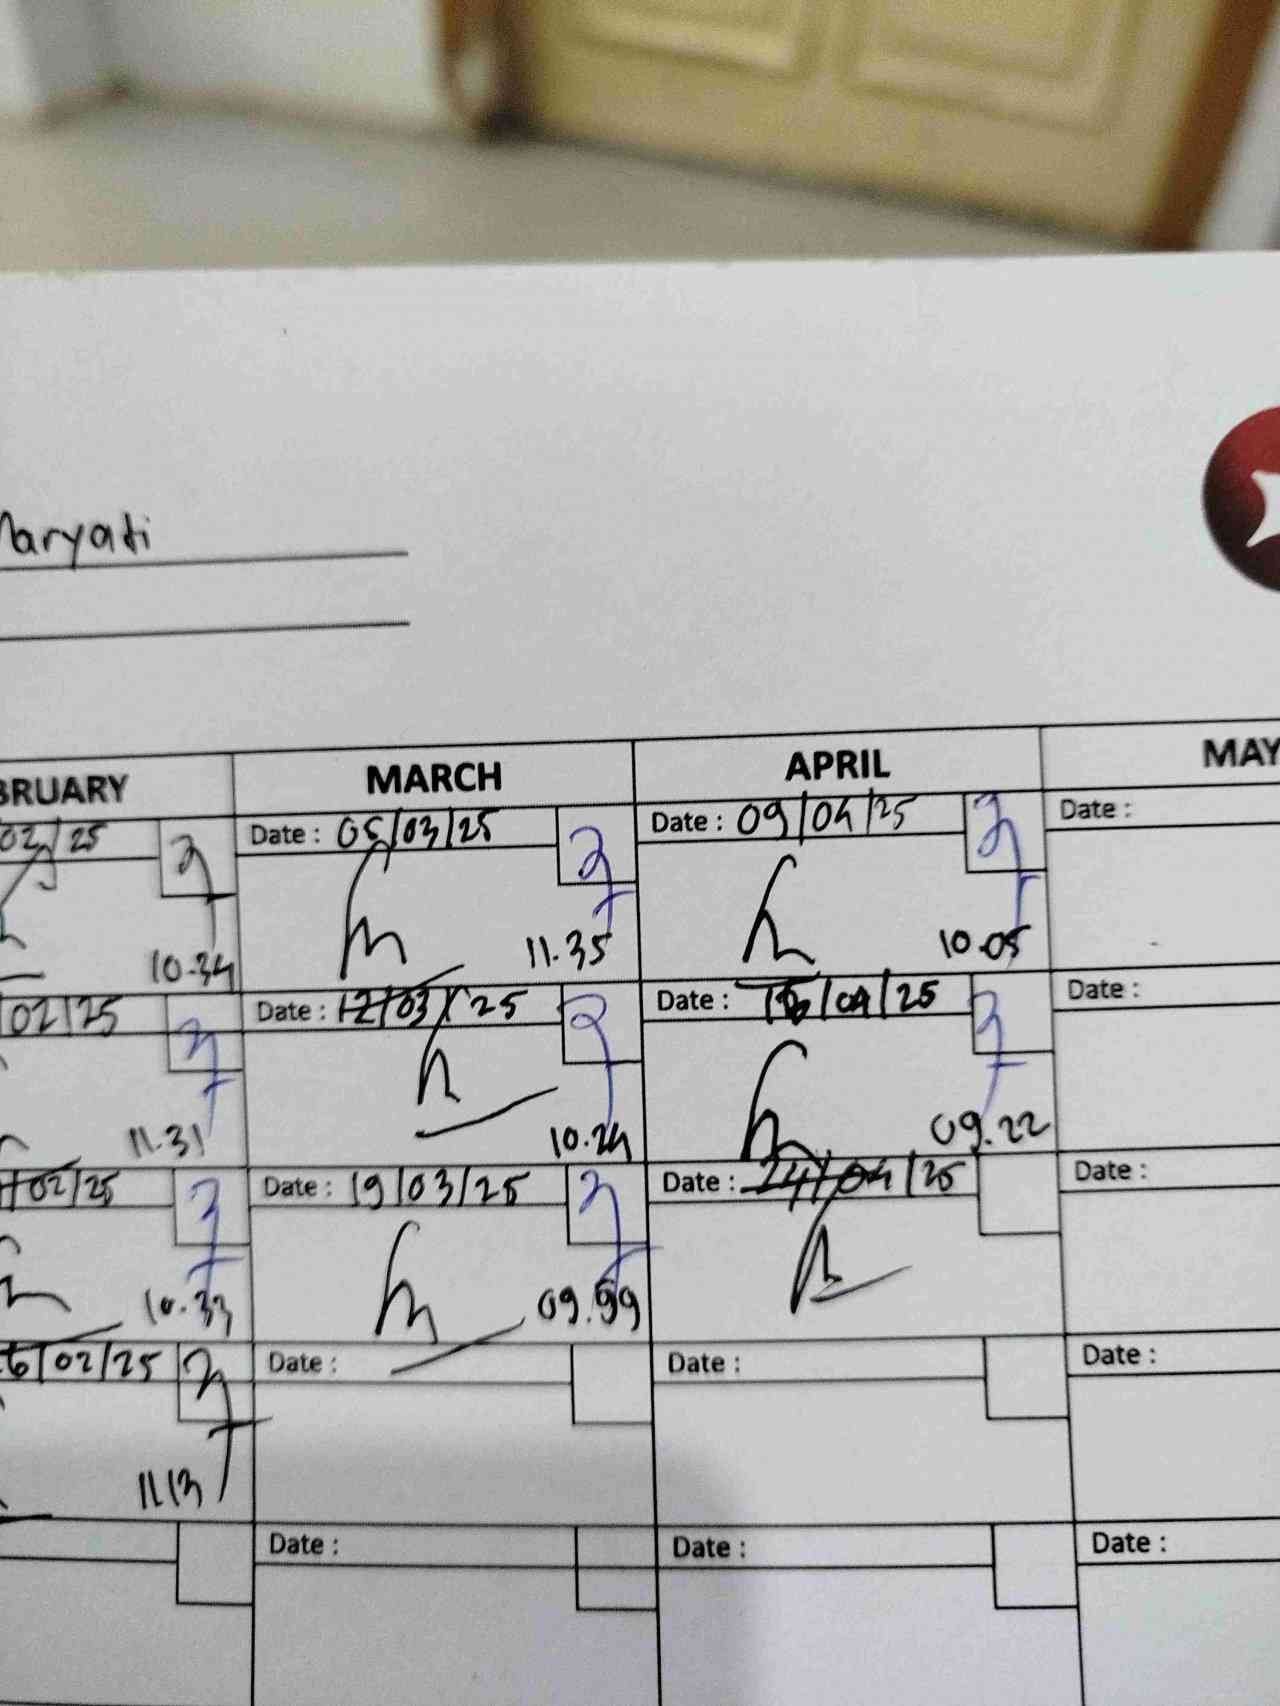 Maryati
BRUARY MARCH APRIL MAY
02/25 Date : 05/03/25 Date : 09/04/25 Date :
10.34 11.35 10.05
02/25 Date : 12/03/25 Date : 16/04/25 Date :
11.31 10.24 09.22
/02/25 Date : 19/03/25 Date : 24/04/25 Date :
10.33 09.59
26/02/25 Date : Date : Date :
11.13
Date : Date : Date :